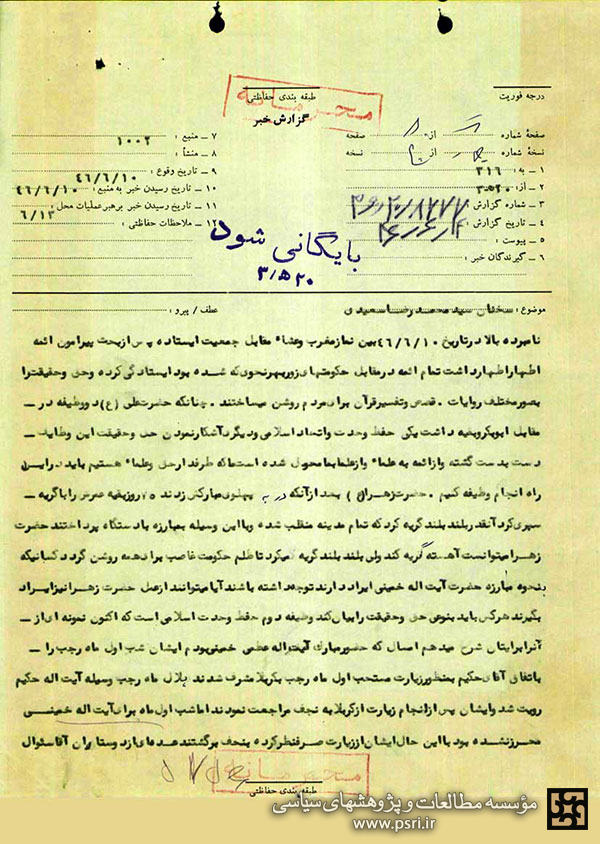 طبقه بندی حفاظتی
محرمانه
گزارش خبر
درجه فوریت
صفحهٔ شماره از صفحه
نسخهٔ شماره از نسخه
۱ ـ به : ۳۱۶
۲ ـ از: ۳۵۲۰
۳ ـ شماره گزارش :
۴ ـ تاریخ گزارش :
۵ ـ پیوست :
۶ ـ گیرندگان خبر :
۷ ـ منبع : ۱۰۰۲
۸ ـ منشأ :
۹ ـ تاریخ وقوع : ۴۶/۶/۱۰
۱۰ ـ تاریخ رسیدن خبر به منبع : ۴۶/۶/۱۰
۱۱ ـ تاریخ رسیدن خبر برهبر عملیات محل : ۶/۱۳
۱۲ ـ ملاحظات حفاظتی :
بایگانی شود
۳/۵۲۰
موضوع : سخنان سید محمد رضا سعیدی
عطف / پیرو :
نامبرده بالا در تاریخ ۴۶/۶/۱۰ بین نماز مغرب و عشاء مقابل جمعیت ایستاده پس از بحث پیرامون ائمه
اطهار اظهار داشت تمام ائمه در مقابل حکومتهای زور بهر نحوی که شده بود ایستادگی کرده و حق و حقیقت را
بصور مختلف روایات ـ قصص و تفسیر قرآن برای مردم روشن میساختند . چنانکه حضرت علی (ع) دو وظیفه در ــ
مقابل ابوبکر وبقیه داشت یکی حفظ وحدت و اتحاد اسلامی و دیگر آشکار نمودن حق و حقیقت این وظایف ــ
دست بدست گشته و از ائمه به علماء و از علما بما محول شده است ما که طرفدار حق و علماء هستیم باید در این
راه انجام وظیفه کنیم . حضرت زهرا (ع) بعد از آنکه در به پهلوی مبارکش زدند ۷۵ روز بقیه عمرش را با گریه ــ
سپری کرد آنقدر بلند بلند گریه کرد که تمام مدینه منقلب شده و با این وسیله بمبارزه با دستگاه پرداختند حضرت
زهرا میتوانست آهسته گریه کند ولی بلند بلند گریه میکرد تا ظلم حکومت غاصب برای همه روشن گردد کسانیکه
بنحوه مبارزه حضرت آیت اله خمینی ایراد دارند توجه داشته باشند آیا میتوانند از عمل حضرت زهرا نیز ایراد
بگیرند هر کس باید بنوعی حق و حقیقت را بیان کند وظیفه دوم حفظ وحدت اسلامی است که اکنون نمونه ای از ــ
آنرا برایتان شرح میدهم امسال که حضور مبارک آیت اله عظمی خمینی بودم ایشان شب اول ماه رجب را ــ
باتفاق آقای حکیم بمنظور زیارت مستحب اول ماه رجب بکربلا مشرف شدند هلال ماه رجب وسیله آیت اله حکیم
رویت شد و ایشان پس از انجام زیارت از کربلا به نجف مراجعت نمودند اما شب اول ماه برای آیت اله خمینی
محرز نشده بود با این حال ایشان از زیارت صرفنظر کرده بنجف برگشتند عده ای از دوستان از آقا سئوال
محرمانه
طبقه بندی حفاظتی
مؤسسه مطالعات و پژوهشهای سیاسی
www.psri.ir